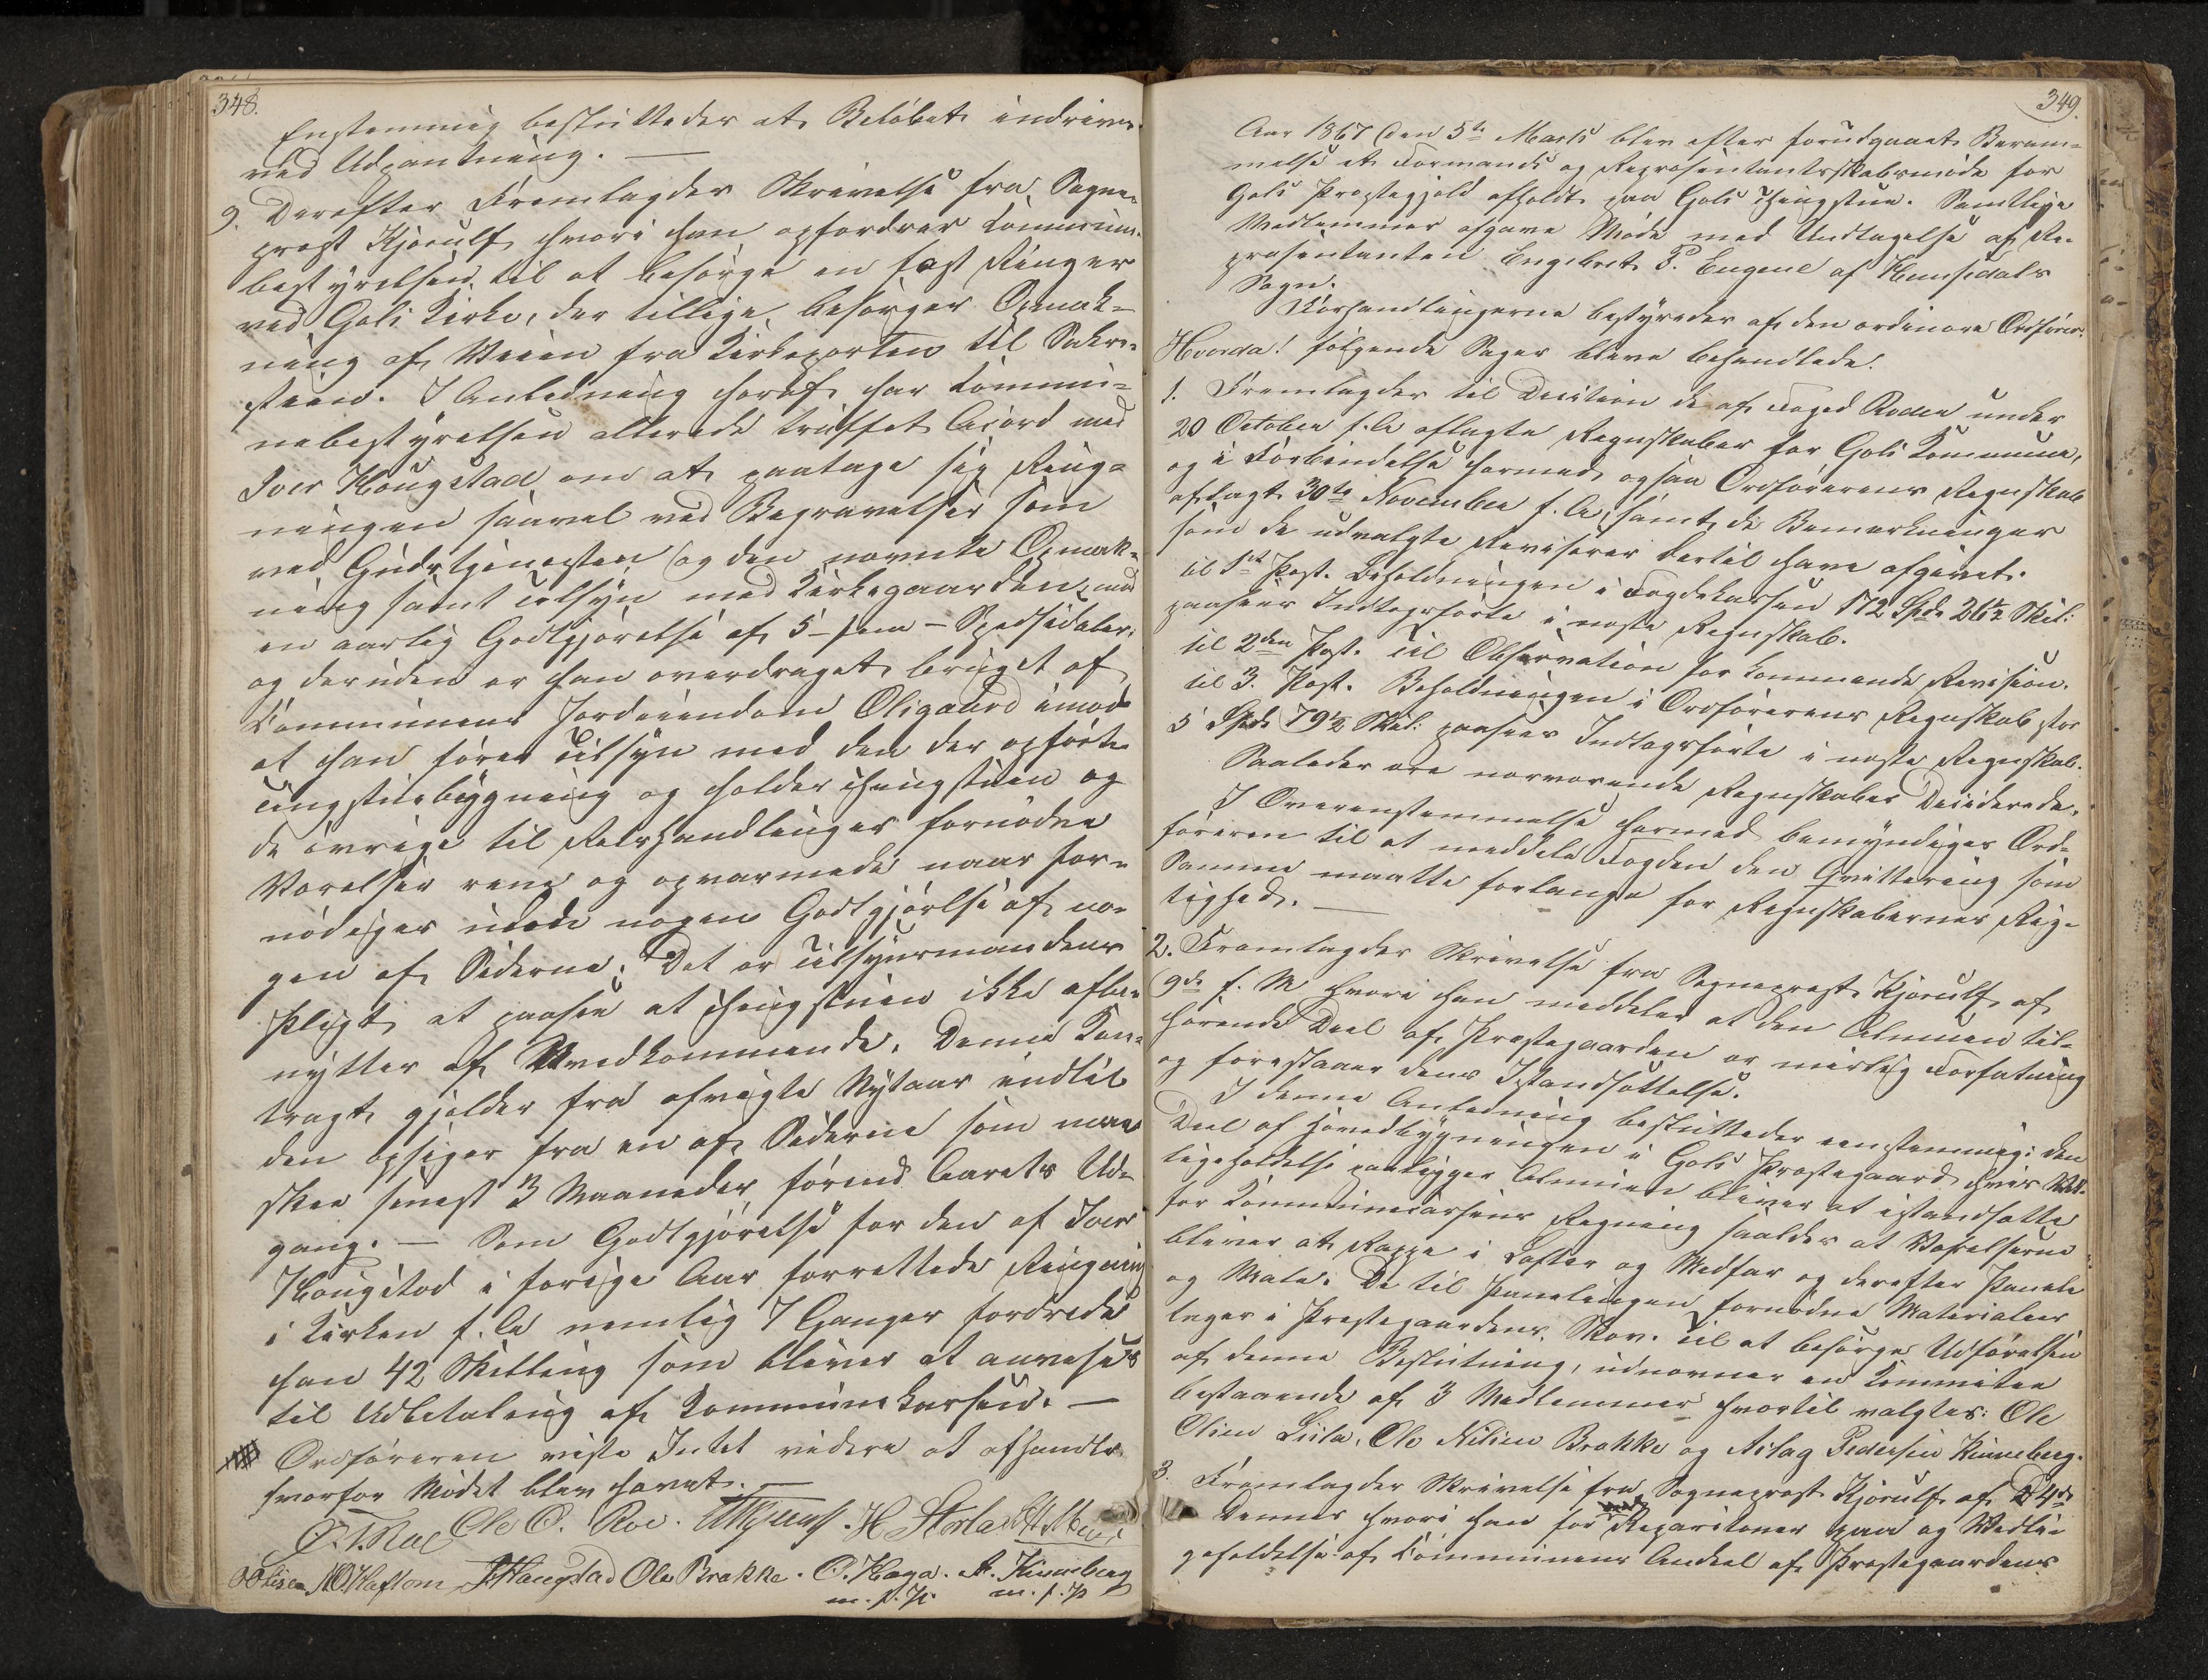 348.
Enstemmig besluttedes at Beløbet indrives
ved Udpantning. —
9. Derefter Fremlagdes Skrivelse fra Sogne-
præst Kjerulf hvori han opfordrer Kommune-
bestyrelsen til at besørge en fast Ringer
ved Gols Kirke, der tillige besørger Opmåk-
ning af Veien fra Kirkeporten til Sakri-
stien. I Anledning heraf har Kommu-
nebestyrelsen allerede truffet Acord med
Iver Hougstad om at paatage sig Ring-
ningen saavel ved Begravelser som
ved Gudstjenesten og den nævnte Opmåk-
ning samt Tilsyn med Kirkegaarden, mod
en aarlig Godtgjørelse af 5 – fem – Spedsidaler;
og desuden er han overdraget bruget af
Kommunens Jordeiendom Oligaard imod
at han fører Tilsyn med den der opførte
Tingstuebygning og holder Thingstuen og
de øvrige til Retshandlinger fornødne
Værelser rene og opvarmede naar for-
nødiges uden nogen Godtgjørelse af no-
gen af Siderne. Det er Tilsynsmandens
Pligt at paase at Thingstuen ikke afbe-
nyttes af Uvedkommende. Denne Kon-
tragt gjelder fra afvigte Nytaar indtil
den opsiges fra en af Siderne som maa
skee senest 3 Maaneder førend Aarets Ud-
gang. — Som Godtgjørelse for den af Iver
Hougstad i forrige Aar forrettede Ringning
i Kirken f. A nemlig 7 Ganger fordrede
han 42 Skilling som bliver at anvises
til Udbetaling af Kommunekassen. —
Ordføreren viste Intet videre at afhandle
hvorfor Mødet blev hævet. —
Ole O. Roe. H Storla
O Olsen N O Kaftom I Haugstad Ole Brakke. O. Haga. A. Kinneberg
m. f. P. m. f. P
349.
Aar 1867 den 5te Marts blev efter forudgaaet Beram-
melse et Formands og Repræsentantskabsmøde for
Gols Præstegjeld afholdt paa Gols Thingstue. Samtlige
Medlemmer afgave Møde med Undtagelse af Re-
præsentanten Engebret P. Eugene af Hemsedals
Sogn.
Forhandlingerne bestyredes af den ordinære Ordfører.
Hvorda! følgende Sager bleve behandlede:
1. Fremlagdes til Decition de af Foged Roden under
20 October f.A aflagte Regnskaber for Gols Kommune,
og i Forbindelse hermed ogsaa Ordførerens Regnskab
aflagt 30te November f. A, samt de Bemærkninger
som de udvalgte Revisorer dertil have afgivet.
til 1ste Post. Beholdningen i Fogdekassen 172 Spd. 26½ Skil:
paasees Indtægtsførte i næste Regnskab.
til 2den Post. Til Observation for kommende Revision.
til 3. Post. Beholdningen i Ordførerens Regnskab stor
5 Spd. 79½ Skil: paasees Indtægtsførte i næste Regnskab.
Saaledes ere nærværende Regnskaber Deciderede.
I Overenstemmelse hermed bemyndiges Ord-
føreren til at meddele Fogden den Qvittering som
Samme maatte forlange for Regnskabernes Rig-
tighed. —
2. Fremlagdes Skrivelse fra Sognepræst Kjerulf af
9de f. M hvori han meddeler at den Almuen til-
hørende Deel af Præstegaarden er mislig Forfatning
og foreslaaer dens Istandsættelse.
I denne Anledning besluttedes eenstemmig: den
Deel af Hovedbygningen i Gols Præstegaard hvis Ved-
ligeholdelse paaligger Almuen bliver at istandsætte
for Kommunecassens Regning saaledes at Værelserne
bliver at Rappe i Lofter og Medfar og derefter Panele
og Male. De til Panelingen fornødne Materialier
tages i Præstegaardens Skov. Til at besørge Udførelsen
af denne Beslutning, udnævnes en Kommitee
bestaaende af 3 Medlemmer hvortil valgtes: Ole
Olsen Liila, Ole Nilsen Brakke og Aslag Pedersen Kinneberg.
3. Fremlagdes Skrivelse fra Sognepræst Kjerulf af D 4de
Dennes hvori han for Reparationer paa og Vedli-
geholdelse af Kommunens Andeel af Præstegaardens